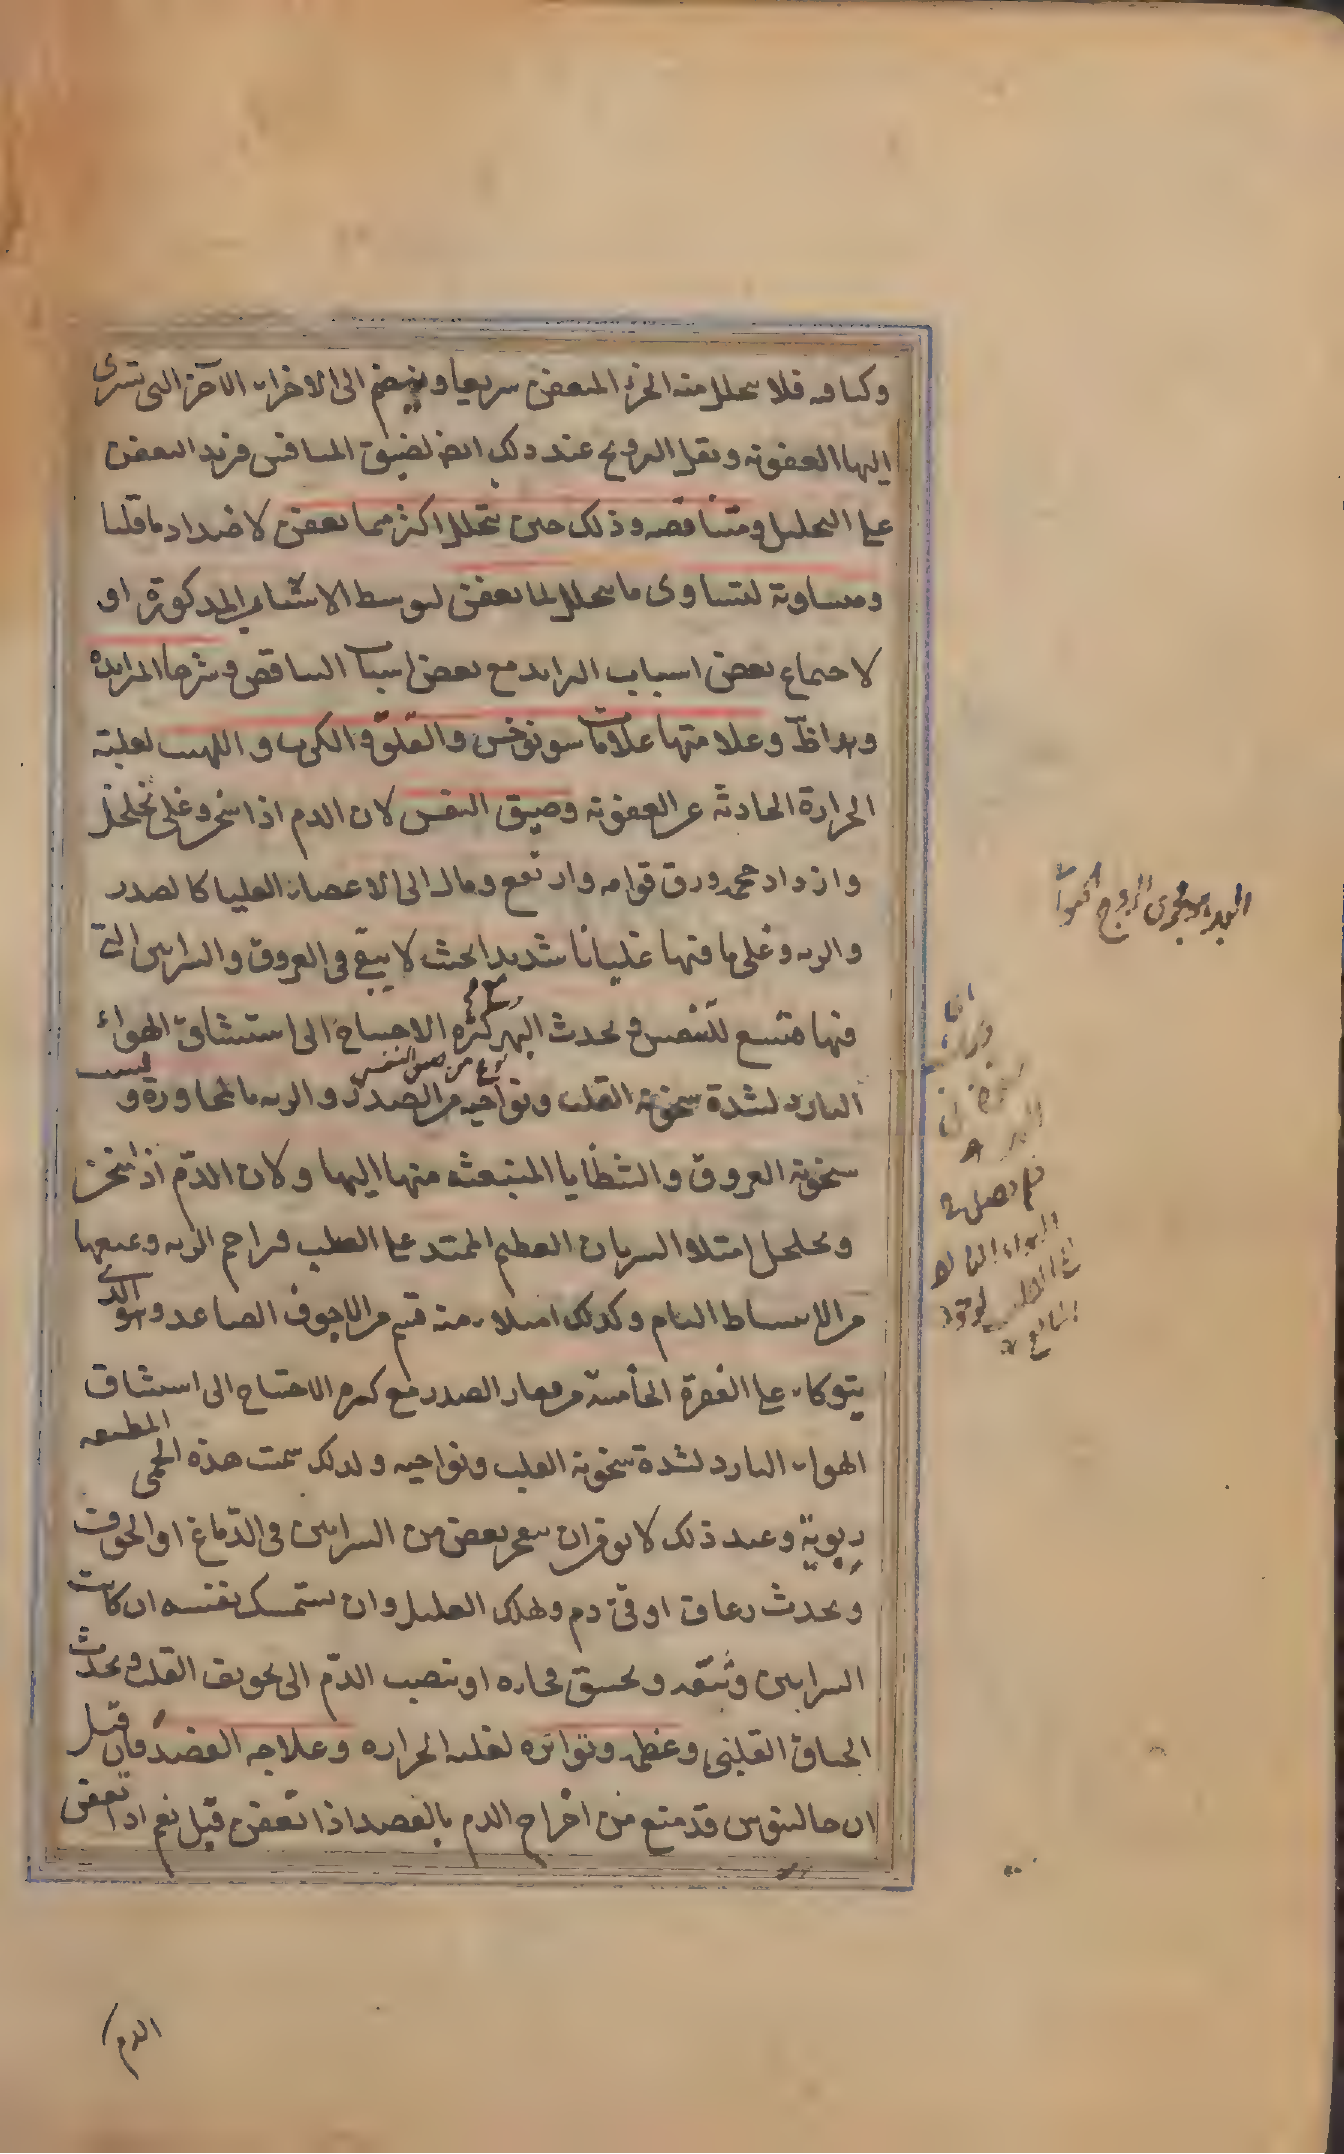 وكثافته فلا يتحلل منه الجزء المتعفن سريعا وينضم الى الاجزاء الآخر التى تسرى
اليها العفونة ويقل الترويح عند ذلك ايض لضيق المنافس فيزيد التعفن
على التحليل ومتناقصه وذلك حين يتحلل اكثر مما يعفن لاضداد ما قلنا
ومساوية لتساوى ما يتحلل لما يعفن لتوسط الاشياء المذكورة او
لاجتماع بعض اسباب التزايد مع بعض اسباب التناقص وشرها المتزايدة
وهو ظ وعلامتها علامات سونوخس والقلق والكرب و اللهيب لغلبة
الحرارة الحادثة عن العفونة وضيق النفس لان الدم اذا سخن وغلى تخلخل
وازداد حجمه ورق قوامه وارتفع ومال الى الاعضاء العليا كالصدر
والريه وغلى ما فيها غليانا شديدا بحيث لا يبقى فى العروق والشرايين التى
فيها متسع للتنفس و يحدث البهر كثرة الاحتياج الى استنشاق الهواء
نوع من ضيق النفس
البارد لشدة سخونة القلب ونواحيه من الصدر والريه بالمجاورة و لسبب
سخونة العروق والشظايا المنبعثه منها اليها ولان الدم اذا سخن
وتخلخل امتلا الشريان العظيم الممتد على الصلب فزاحم الريه ومنعها
من الانبساط التام وكذلك امتلاء منه قسم من الاجوف الصاعد وهو الذى
يتوكاء على الفقرة الخامسة من فقار الصدر مع كثرة الاحتياج الى استنشاق
الهواء البارد لشدة سخونة القلب ونواحيه ولذلك سميت هذه الحمى المطبقه
ربوية وعند ذلك لا يؤمن ان ينفجر بعض من الشرايين فى الدماغ او الجوف
ويحدث رعاف او قئ دم ويهلك العليل وان يستمسك بنفسه ان كانت
الشرايين وثيقه ويختنق بخاره او ينصب الدم الى تجويف القلب ويحدث
الخناق القلبى وعظمه وتواتره لغلبه الحراره وعلاجه الفصد فان قيل
ان جالينوس قد منع من اخراج الدم بالفصد اذا تعفن قيل نعم اذا تعفن
الدم